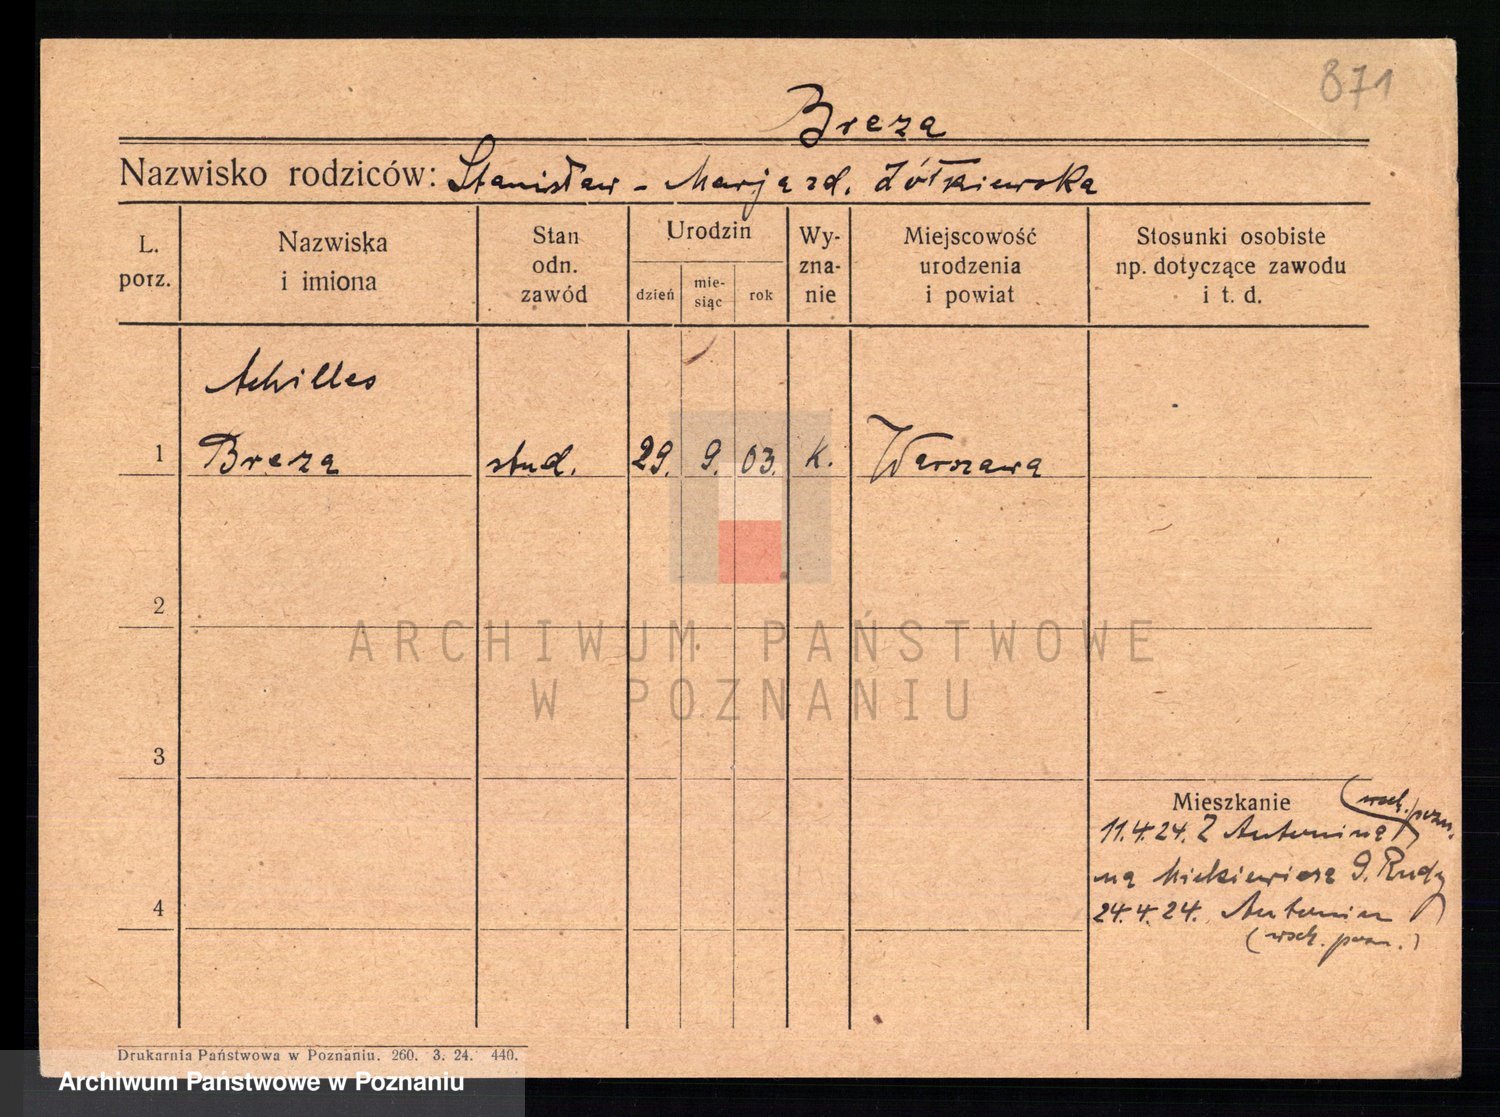 871
Breza
Nazwisko rodziców: Stanisław - Marja zd. Żółkiewska
L. porz.
Nazwiska i imiona
Stan odn. zawód
Urodzin
dzień
mie-siąc
rok
Wy-zna-nie
Miejscowość urodzenia i powiat
Stosunki osobiste np. dotyczące zawodu i t. d.
Achilles
1 Breza stud. 29. 9. 03. k. Warszawa
2
ARCHIWUM PAŃSTWOWE
W POZNANIU
3
Mieszkanie (wsch. pozn.)
11.4.24. Z Antonina
na Mickiewicza 9. Rudy
4
24.4.24. Antonin
(wsch. pozn.)
Drukarnia Państwowa w Poznaniu. 260. 3. 24. 440.
Archiwum Państwowe w Poznaniu